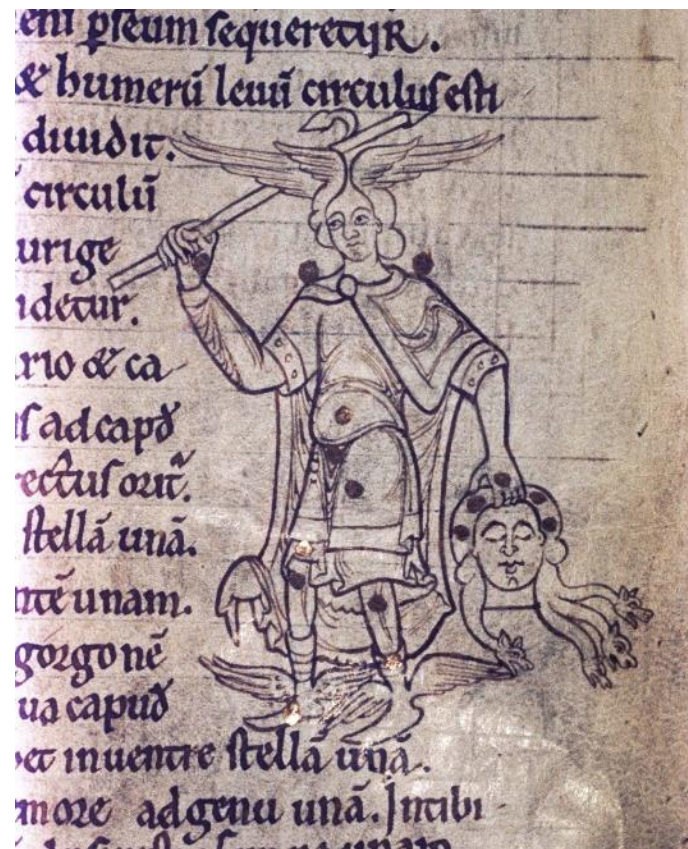 pseum sequeretur.
& humerū leuū circulus esti
diuidit.
circulū
urige
idetur.
rio & ca
ad capđ
rectus orit̃.
stellā unā.
ntē unam.
gorgonē
ua capuđ
et inuentre stellā unā.
more adgenu unā. Intibi